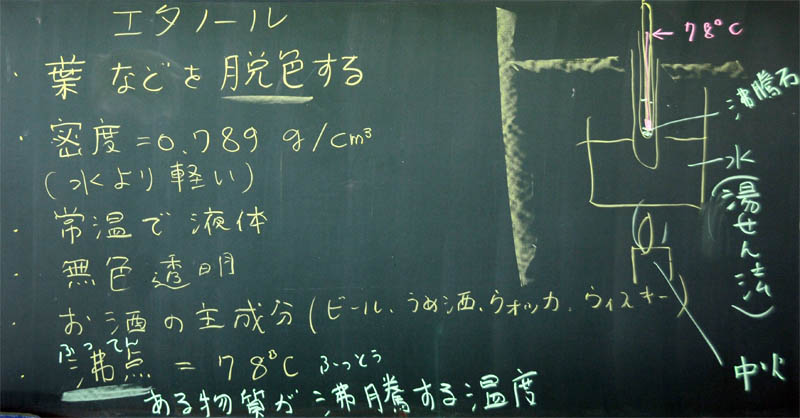 エタノール
・葉などを脱色する
・密度=0.789 g/cm³
(水より軽い)
・常温で液体
・無色透明
・お酒の主成分(ビール、うめ酒、ウォッカ、ウィスキー)
ふってん
・沸点 = 78°C
ふっとう
ある物質が沸騰する温度
←78°C
沸騰石
水
(湯せん法)
中火